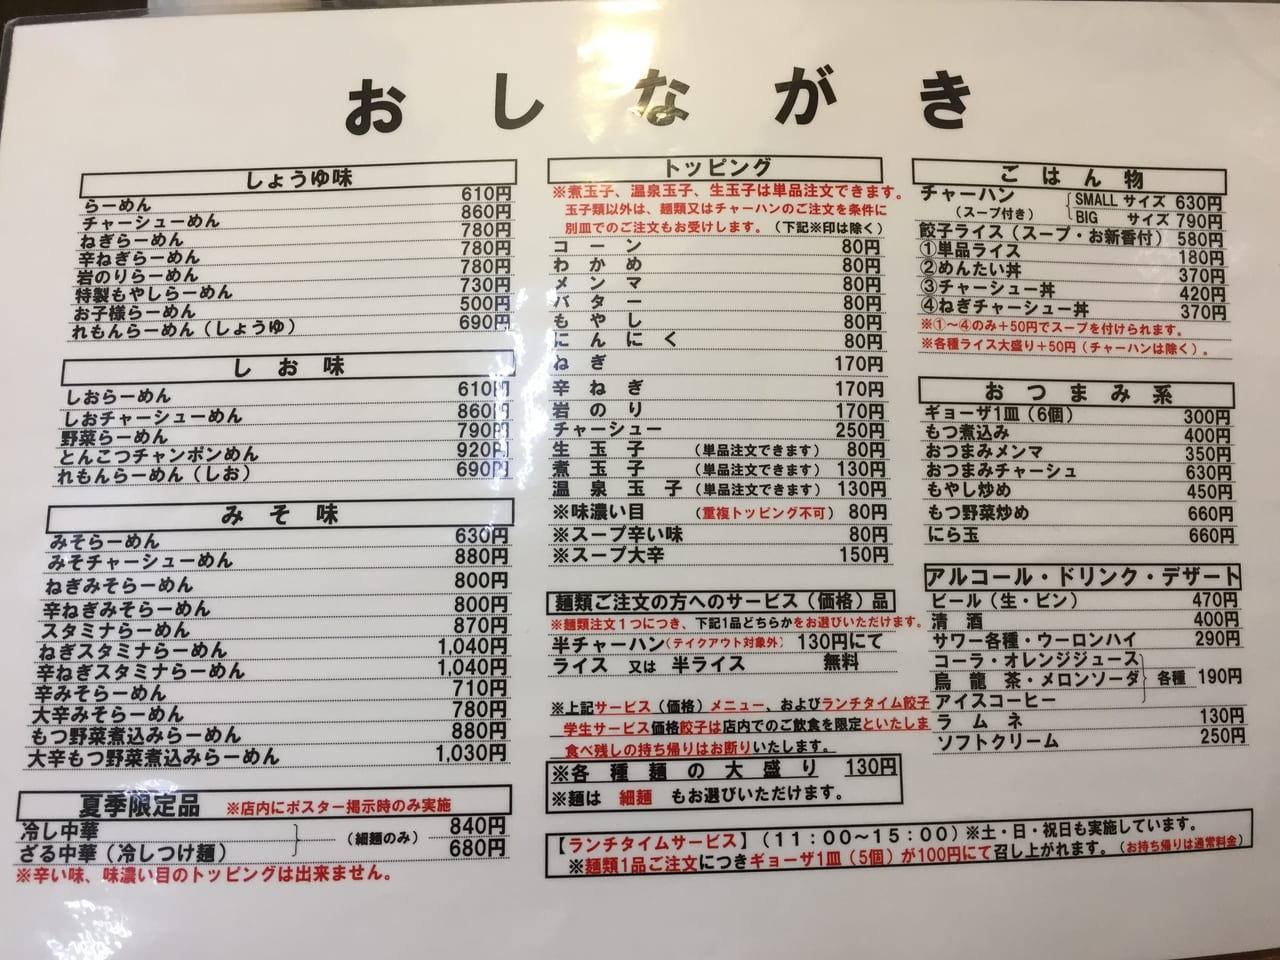 おしながき
しょうゆ味
らーめん 610円
チャーシューめん 860円
ねぎらーめん 780円
辛ねぎらーめん 780円
岩のりらーめん 780円
特製もやしらーめん 730円
お子様らーめん 500円
れもんらーめん（しょうゆ） 690円
しお味
しおらーめん 610円
しおチャーシューめん 860円
野菜らーめん 790円
とんこつチャンポンめん 920円
れもんらーめん（しお） 690円
みそ味
みそらーめん 630円
みそチャーシューめん 880円
ねぎみそらーめん 800円
辛ねぎみそらーめん 800円
スタミナらーめん 870円
ねぎスタミナらーめん 1,040円
辛ねぎスタミナらーめん 1,040円
辛みそらーめん 710円
大辛みそらーめん 780円
もつ野菜煮込みらーめん 880円
大辛もつ野菜煮込みらーめん 1,030円
夏季限定品 ※店内にポスター掲示時のみ実施
冷し中華 840円
（細麺のみ）
ざる中華（冷しつけ麺） 680円
※辛い味、味濃い目のトッピングは出来ません。
トッピング
※煮玉子、温泉玉子、生玉子は単品注文できます。
玉子類以外は、麺類又はチャーハンのご注文を条件に
別皿でのご注文もお受けします。（下記※印は除く）
コーン 80円
わかめ 80円
メンマ 80円
バター 80円
もやし 80円
にんにく 80円
ねぎ 170円
辛ねぎ 170円
岩のり 170円
チャーシュー 250円
生玉子 （単品注文できます） 80円
煮玉子 （単品注文できます） 130円
温泉玉子 （単品注文できます） 130円
※味濃い目 （重複トッピング不可） 80円
※スープ辛い味 80円
※スープ大辛 150円
麺類ご注文の方へのサービス（価格）品
※麺類注文１つにつき、下記1品どちらかをお選びいただけます。
半チャーハン（テイクアウト対象外） 130円にて
ライス 又は 半ライス 無料
※上記サービス（価格）メニュー、およびランチタイム餃子
学生サービス価格餃子は店内でのご飲食を限定といたしま
食べ残しの持ち帰りはお断りいたします。
※各種麺の大盛り 130円
※麺は 細麺 もお選びいただけます。
ごはん物
チャーハン SMALL サイズ 630円
（スープ付き） BIG サイズ 790円
餃子ライス（スープ・お新香付） 580円
①単品ライス 180円
②めんたい丼 370円
③チャーシュー丼 420円
④ねぎチャーシュー丼 370円
※①～④のみ＋50円でスープを付けられます。
※各種ライス大盛り＋50円（チャーハンは除く）。
おつまみ系
ギョーザ1皿（6個） 300円
もつ煮込み 400円
おつまみメンマ 350円
おつまみチャーシュ 630円
もやし炒め 450円
もつ野菜炒め 660円
にら玉 660円
アルコール・ドリンク・デザート
ビール（生・ビン） 470円
清酒 400円
サワー各種・ウーロンハイ 290円
コーラ・オレンジジュース
烏龍茶・メロンソーダ 各種 190円
アイスコーヒー
ラムネ 130円
ソフトクリーム 250円
【ランチタイムサービス】（11：00～15：00）※土・日・祝日も実施しています。
※麺類1品ご注文につきギョーザ1皿（5個）が100円にて召し上がれます。（お持ち帰りは通常料金）